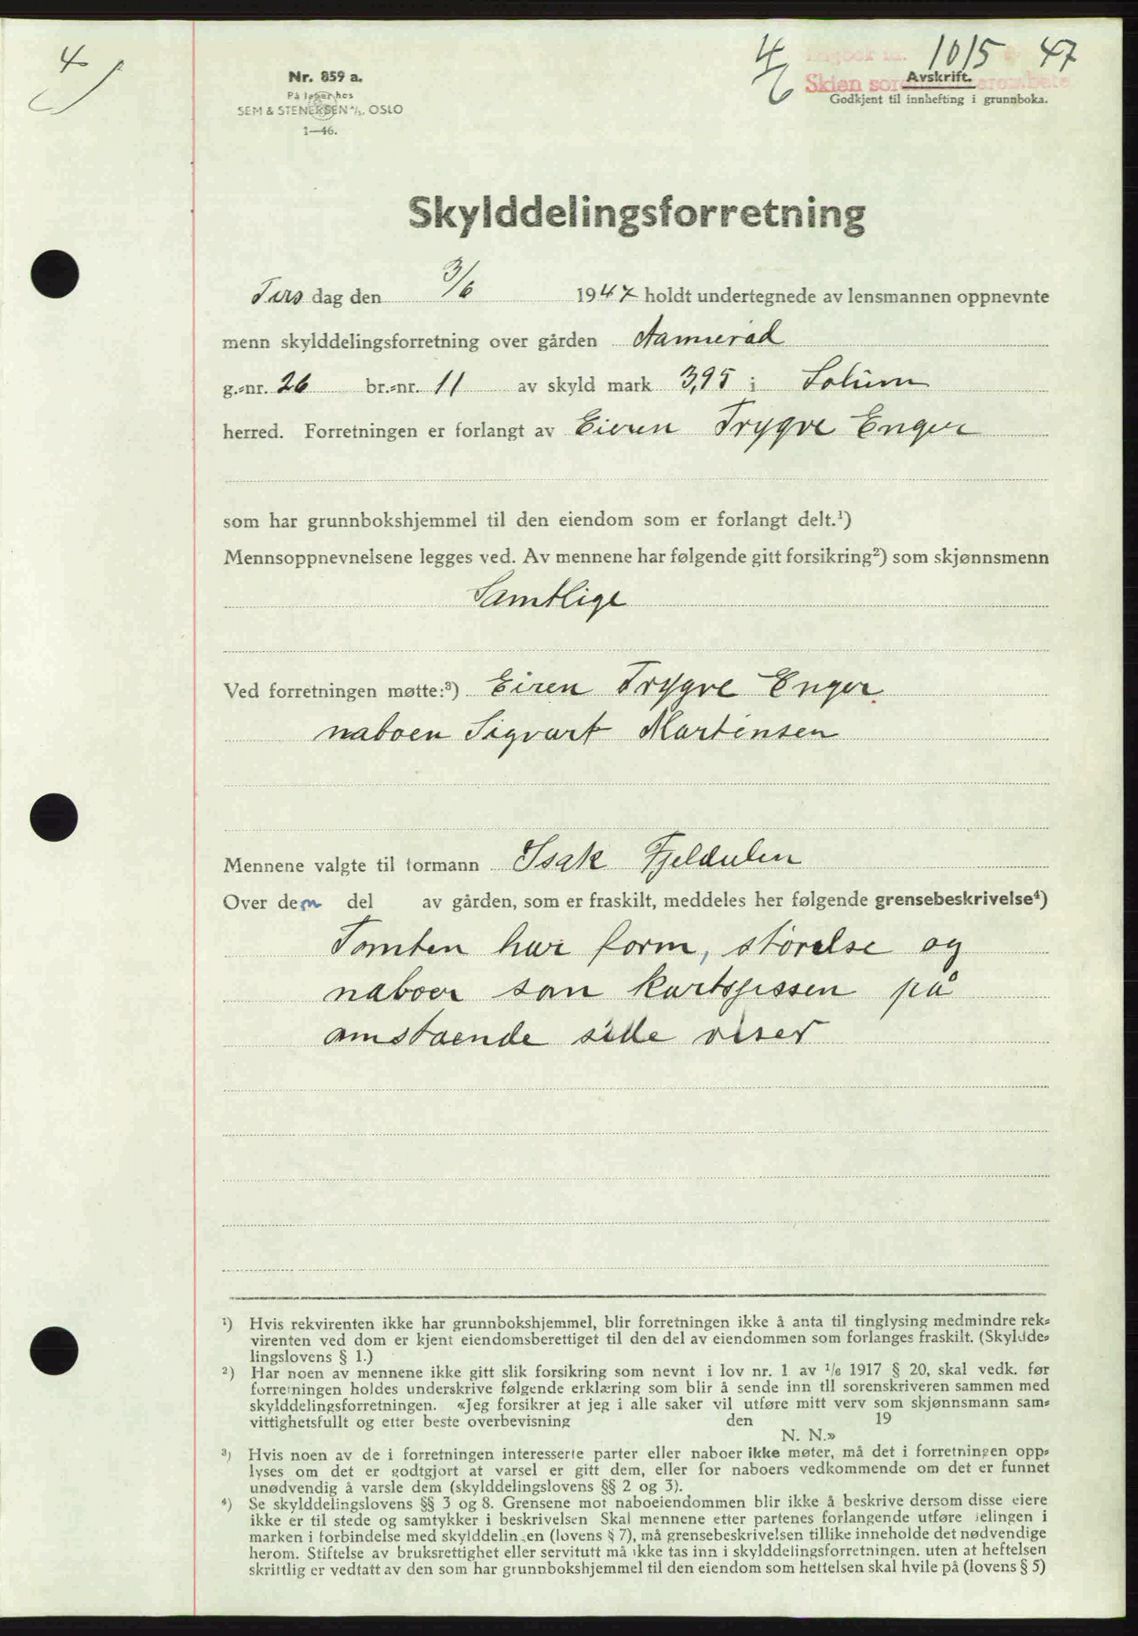 4
Nr. 859 a.
På lager hos
SEM & STENERSEN A/S, OSLO
1—46.
4/6 1015 47
Avskrift.
Godkjent til innhefting i grunnboka.
Skylddelingsforretning
Tirsdag den 3/6 1947 holdt undertegnede av lensmannen oppnevnte
menn skylddelingsforretning over gården Aamerød
g.-nr. 26 br.-nr. 11 av skyld mark 3,95 i Solum
herred. Forretningen er forlangt av Eieren Trygve Enger
som har grunnbokshjemmel til den eiendom som er forlangt delt.¹)
Mennsoppnevnelsene legges ved. Av mennene har følgende gitt forsikring²) som skjønnsmenn
Samtlige
Ved forretningen møtte:³) Eiren Trygve Enger
naboen Sigvart Martinsen
Mennene valgte til formann Isak Fjeldalen
Over den del av gården, som er fraskilt, meddeles her følgende grensebeskrivelse⁴)
Tomten har form, størelse og
naboer som kartskissen på
omstående side viser
¹) Hvis rekvirenten ikke har grunnbokshjemmel, blir forretningen ikke å anta til tinglysing medmindre rek-
virenten ved dom er kjent eiendomsberettiget til den del av eiendommen som forlanges fraskilt. (Skyldde-
lingslovens § 1.)
²) Har noen av mennene ikke gitt slik forsikring som nevnt i lov nr. 1 av 1/6 1917 § 20, skal vedk. før
forretningen holdes underskrive følgende erklæring som blir å sende inn til sorenskriveren sammen med
skylddelingsforretningen. «Jeg forsikrer at jeg i alle saker vil utføre mitt verv som skjønnsmann sam-
vittighetsfullt og etter beste overbevisning den 19
N. N.»
³) Hvis noen av de i forretningen interesserte parter eller naboer ikke møter, må det i forretningen opp-
lyses om det er godtgjort at varsel er gitt dem, eller for naboers vedkommende om det er funnet
unødvendig å varsle dem (skylddelingslovens §§ 2 og 3).
⁴) Se skylddelingslovens §§ 3 og 8. Grensene mot naboeiendommen blir ikke å beskrive dersom disse eiere
ikke er til stede og samtykker i beskrivelsen Skal mennene etter partenes forlangende utføre delingen i
marken i forbindelse med skylddelingen (lovens § 7), må grensebeskrivelsen tillike inneholde det nødvendige
herom. Stiftelse av bruksrettighet eller servitutt må ikke tas inn i skylddelingsforretningen, uten at heftelsen
skriftlig er vedtatt av den som har grunnbokshjemmel til den eiendom som heftelsen skal hvile på (lovens § 5)